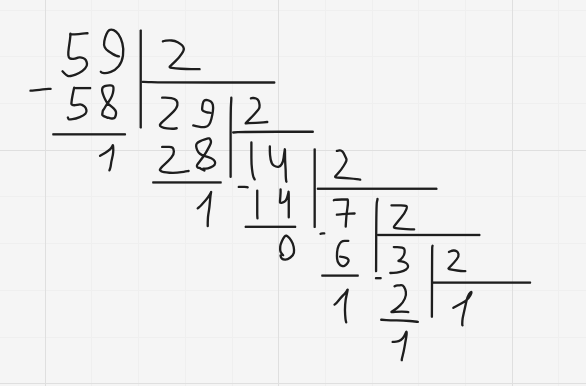 59 2
- 58 29 2
1 28 14 2
1 - 14 7 2
0 - 6 3 2
1 - 2 1
1